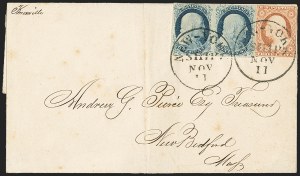 NEW-YORK
SHIP
NOV
11
YORK
SHIP
NOV
11
Andrew G. Pierce Esq Treasurer
New Bedford
Mass